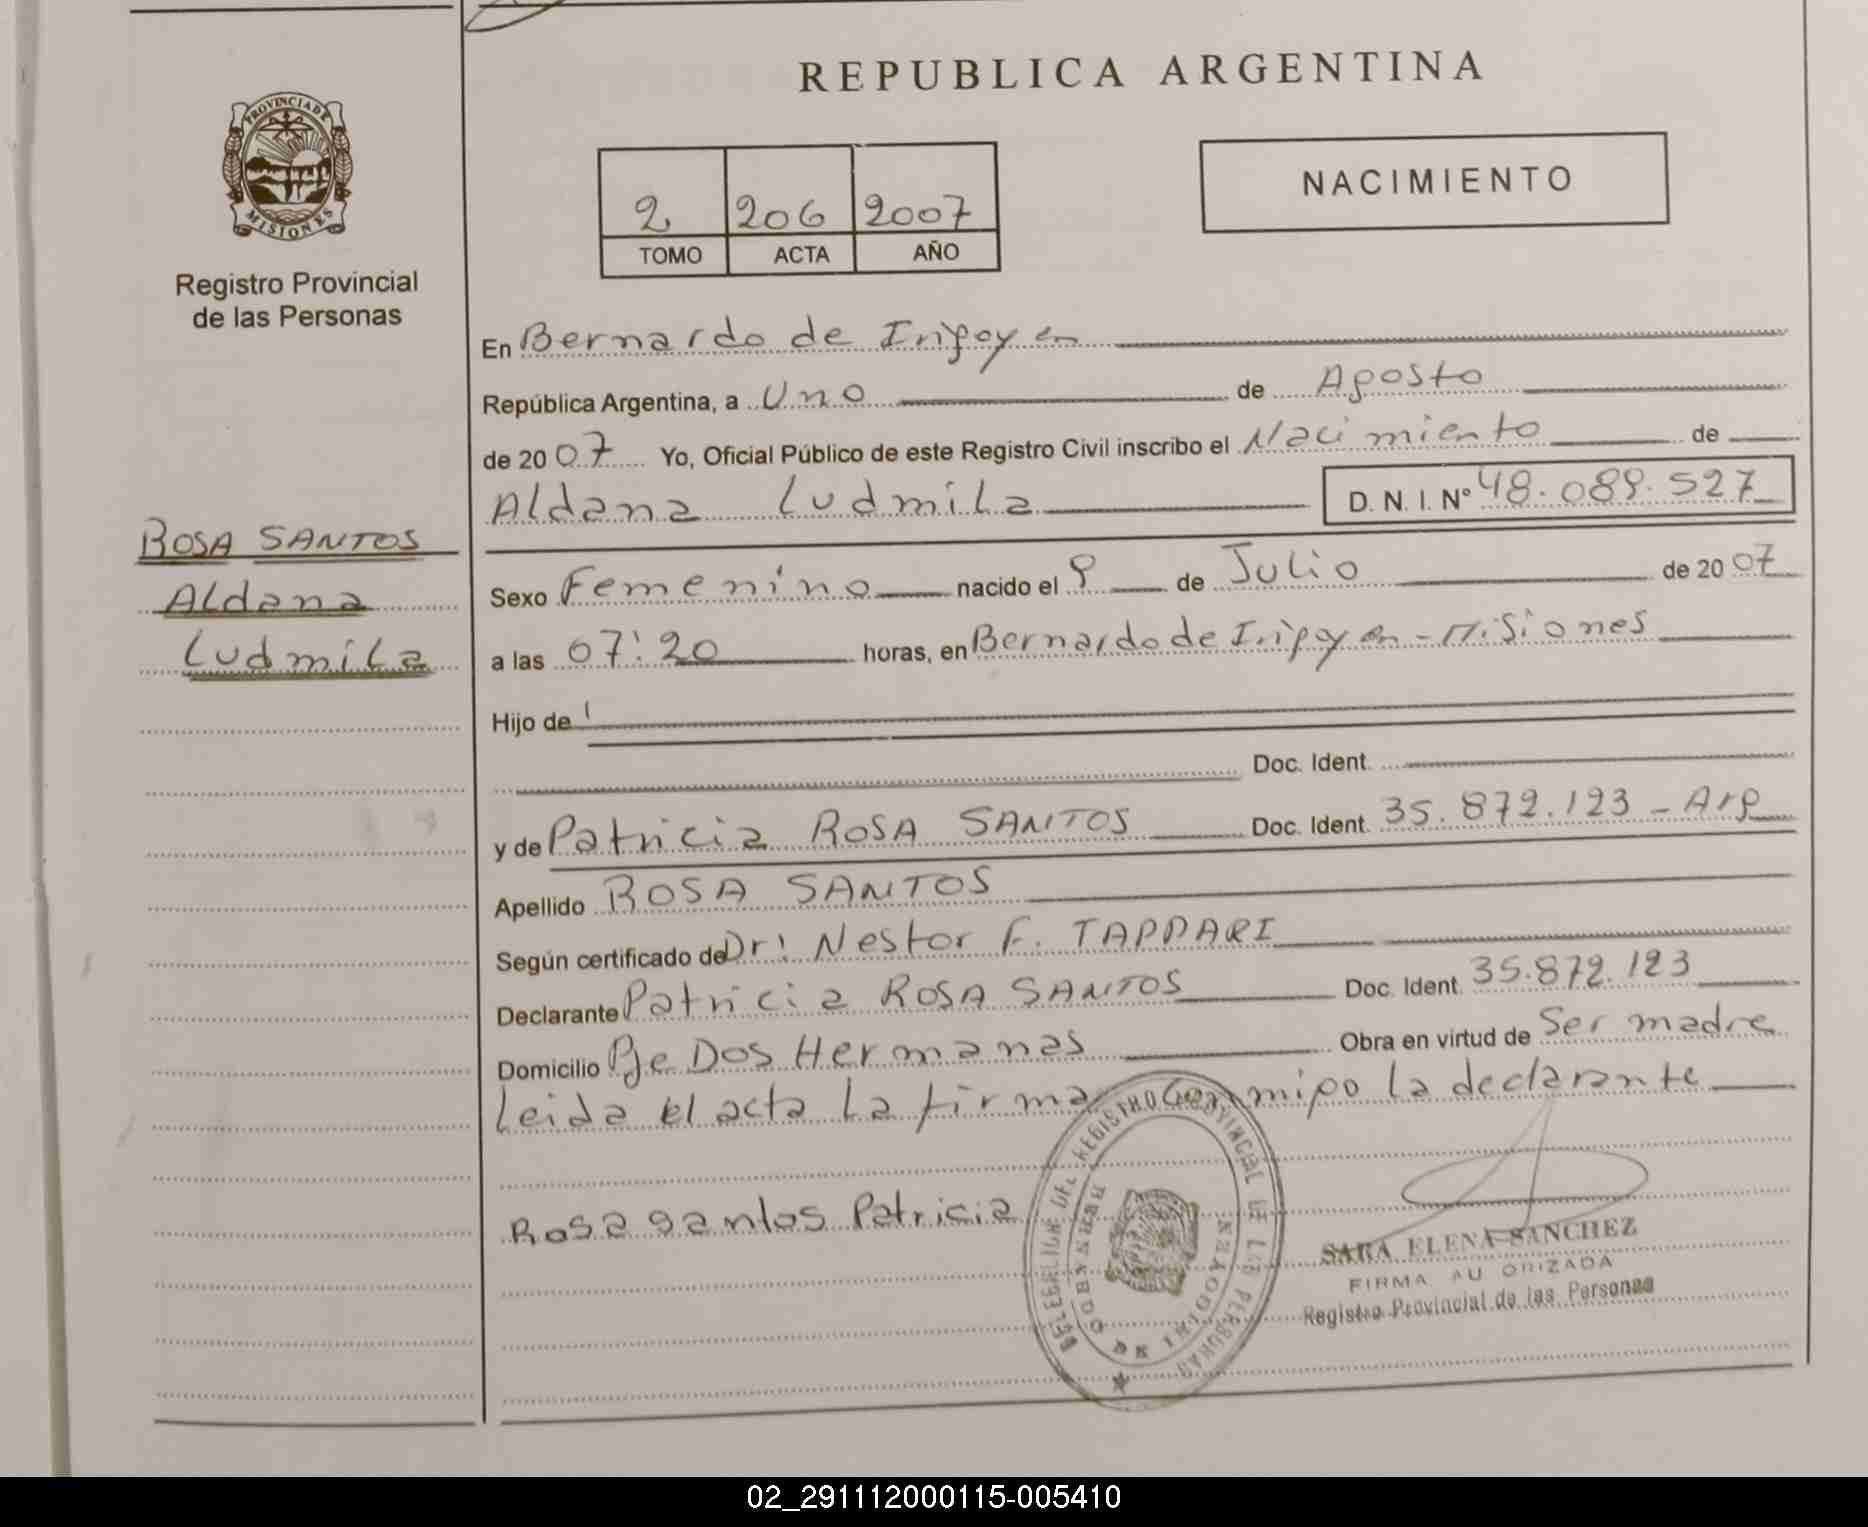 REPUBLICA ARGENTINA
PROVINCIA DE
MISIONES
Registro Provincial
de las Personas
2 206 2007
TOMO ACTA AÑO
NACIMIENTO
En Bernardo de Irigoyen
República Argentina, a Uno de Agosto
de 2007 Yo, Oficial Público de este Registro Civil inscribo el Nacimiento de
Aldana Ludmila D. N. I. Nº 48.089.527
ROSA SANTOS
Aldana
Ludmila
Sexo Femenino nacido el 9 de Julio de 2007
a las 07:20 horas, en Bernardo de Irigoyen - Misiones
Hijo de
Doc. Ident.
y de Patricia ROSA SANTOS Doc. Ident. 35.872.123 - Arg
Apellido ROSA SANTOS
Según certificado de Dr: Nestor F. TAPPARI
Declarante Patricia ROSA SANTOS Doc. Ident. 35.872.123
Domicilio Pje Dos Hermanas Obra en virtud de Ser madre
Leida el acta La firma Conmigo La declarante
Rosa santos Patricia
DELEGACION DEL REGISTRO PROVINCIAL DE LAS PERSONAS
BERNARDO DE IRIGOYEN
SARA ELENA SANCHEZ
FIRMA AU ORIZADA
Registro Provincial de las Personas
02_291112000115-005410